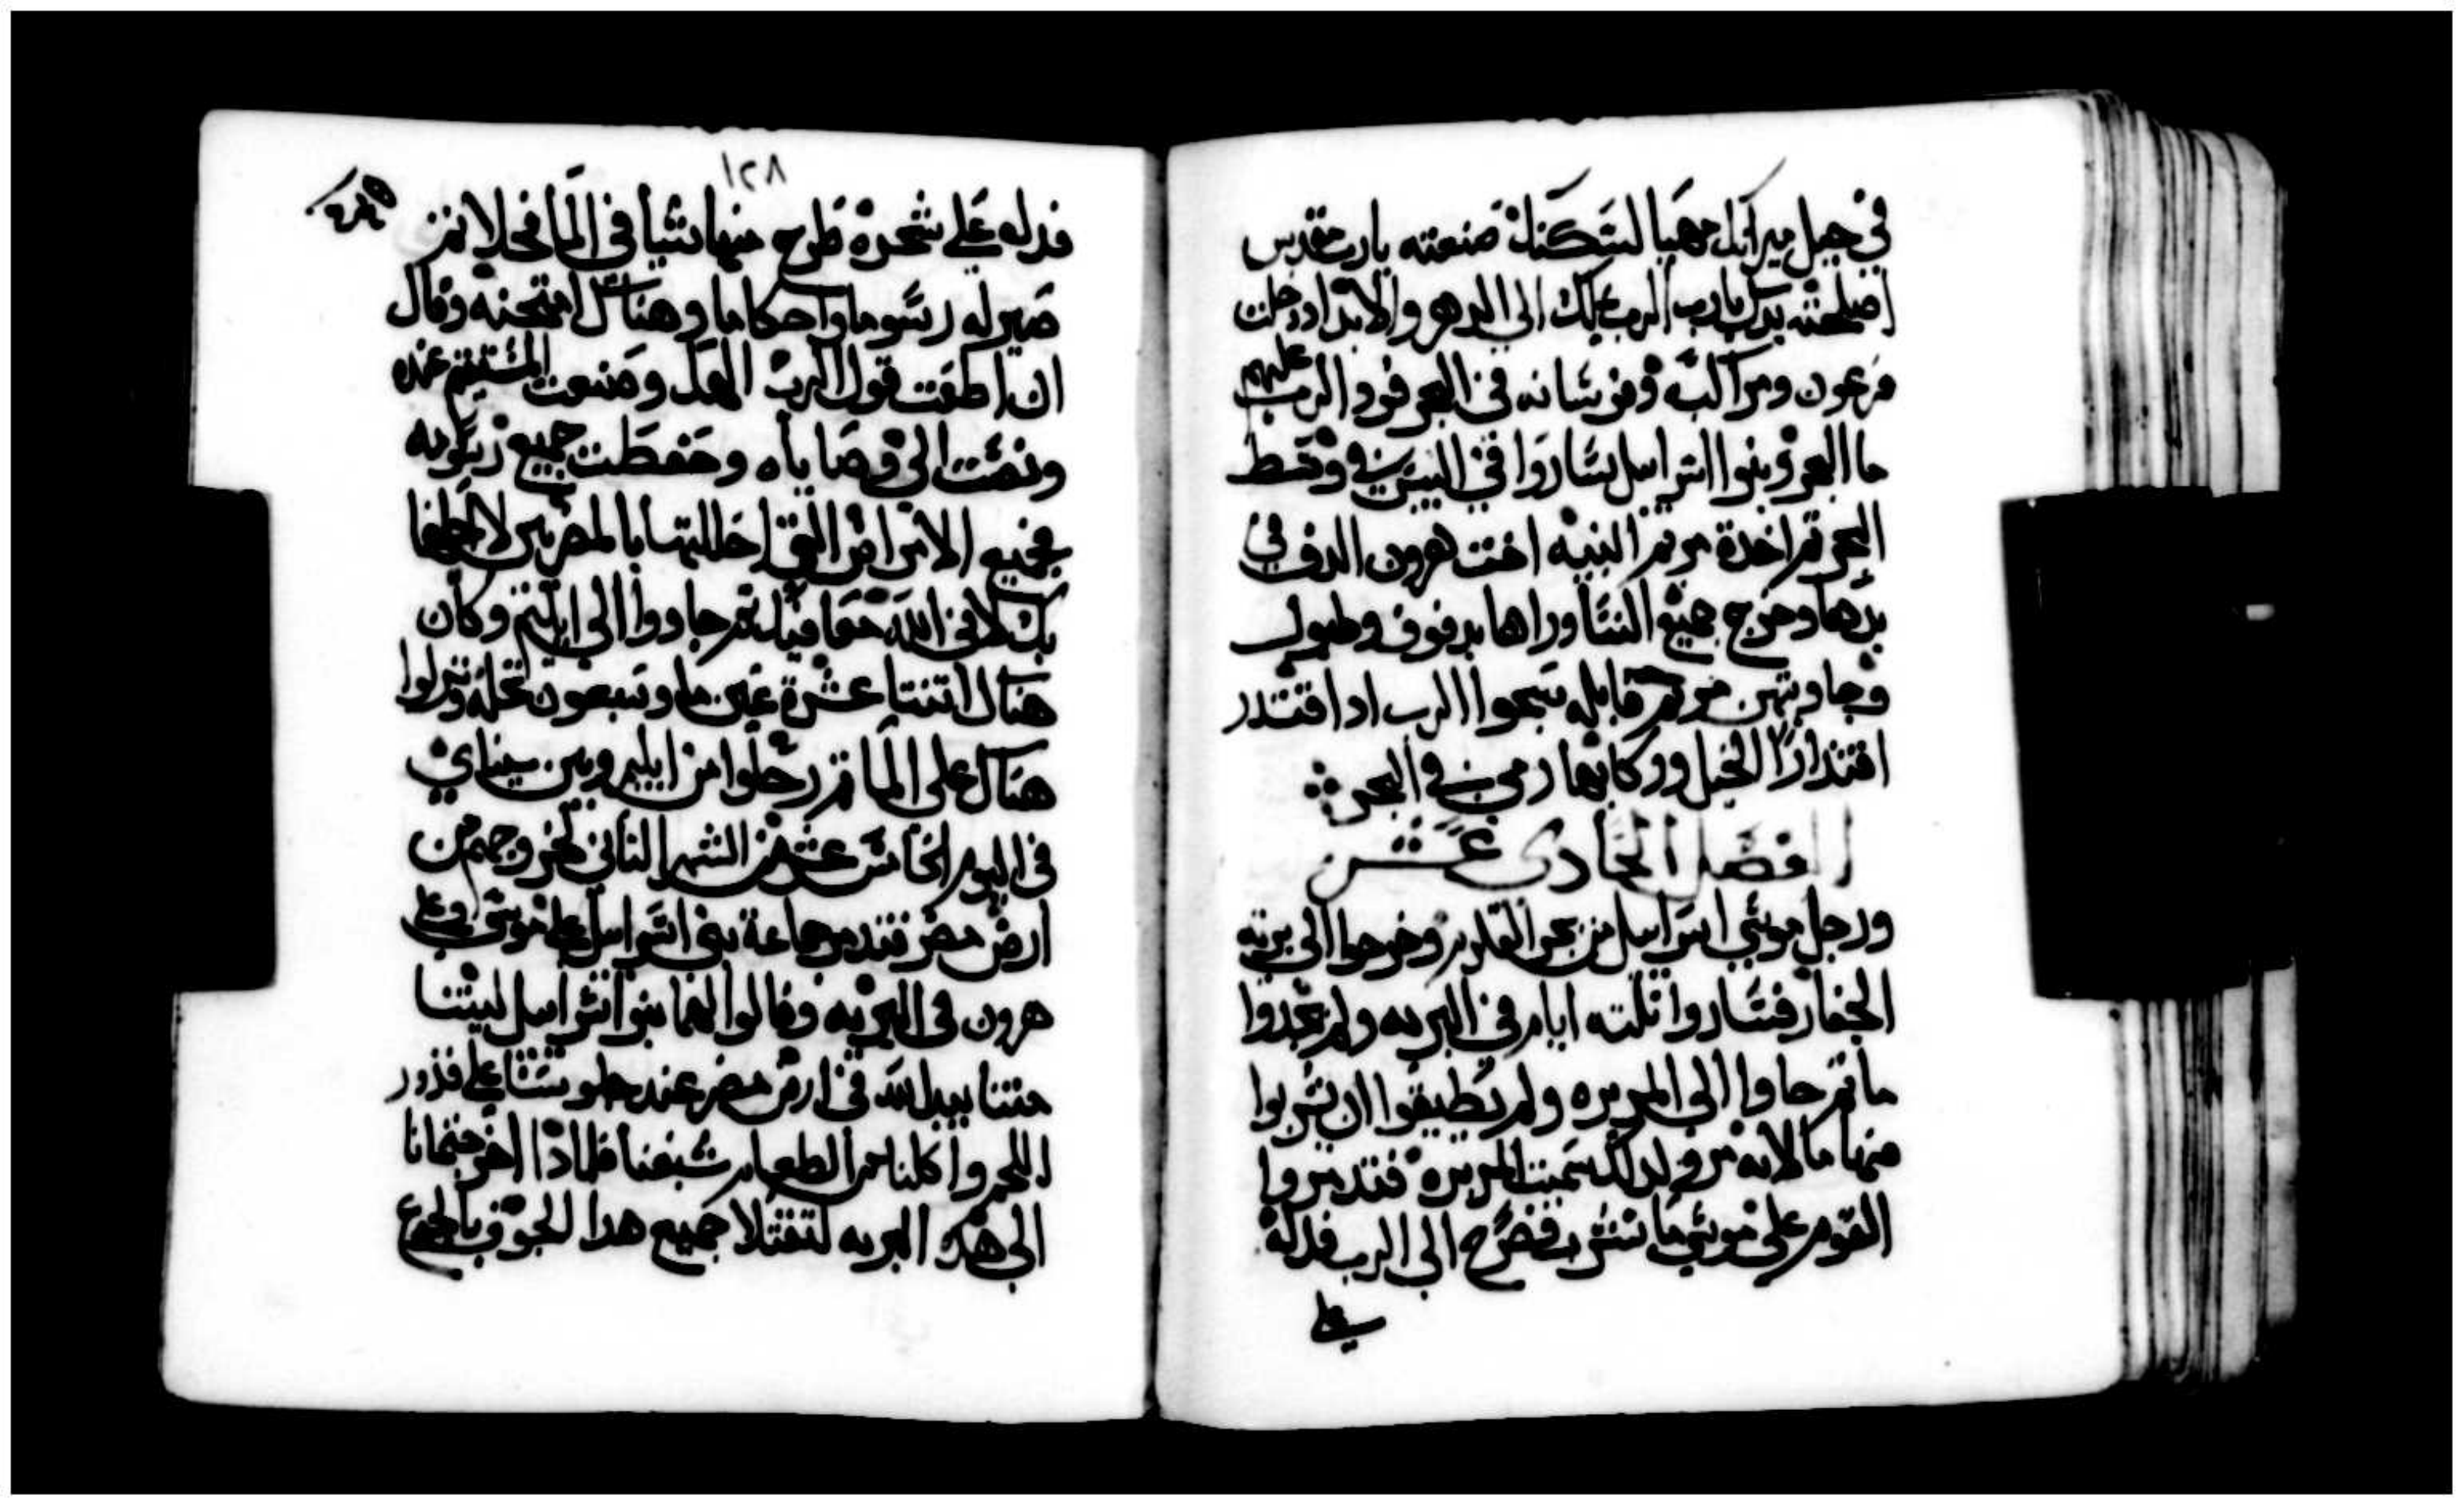 في جبل ميراتك مهيا لسكنك صنعته يارب مقدس
اصلحته يدك يارب الرب يملك الي الدهر والابد ادا دخلت
فرعون ومراكبه وفرسانه في البحر فرد الرب عليهم
ما البحر وبنوا اسراييل ساروا في اليبس في وسط
البحر تم اخدة مريم النبيه اخت هرون الدف في
يدها وخرج جميع النسا وراها بدفوف وطبول
وجاوبتهن مريم قايله سبحوا الرب اد اقتدر
اقتدارًا الخيل وركابها رمي في البحر
الفصل الحادى عشر
ورحل موسي اسراييل من بحر القلزم وخرجوا الي بريه
الجفار فساروا تلته ايام في البريه ولم يجدوا
ما تم جاوا الي المريره ولم يطيقوا ان يشربوا
منها ما لانه مر ولدلك سميت المريره فتدمروا
القوم علي موسي ما نشرب فصرخ الي الرب فدله
علي
١٢٨
فدله علي شجره طرح منها شيا في الما فحلا تم
صير له رسوما واحكاما وهناك امتحنه وقال
ان اطعت قول الرب الهك وصنعت المستقيم عنده
ونصت الي وصاياه وحفظت جميع رسومه
فجميع الامراض التي احللتها بالمصريين لا احلها
بك لاني الله معافيك تم جاووا الي ايليم وكان
هناك اتنتا عشرة عين ما وسبعون نخله ونزلوا
هناك علي الما تم رحلوا من ايليم وبين سيناي
في اليوم الخامس عشر من الشهر التاني لخروجهم من
ارض مصر فتدمر جماعة بني اسراييل علي موسي وعلي
هرون في البريه وقالوا لهما بنوا اسراييل ليتنا
متنا بيد الله في ارض مصر عند جلوسنا علي قدور
اللحم واكلنا من الطعام شبعنا فلمادا اخرجتمانا
الي هده البريه لتقتلا جميع هدا الجوق بالجوع